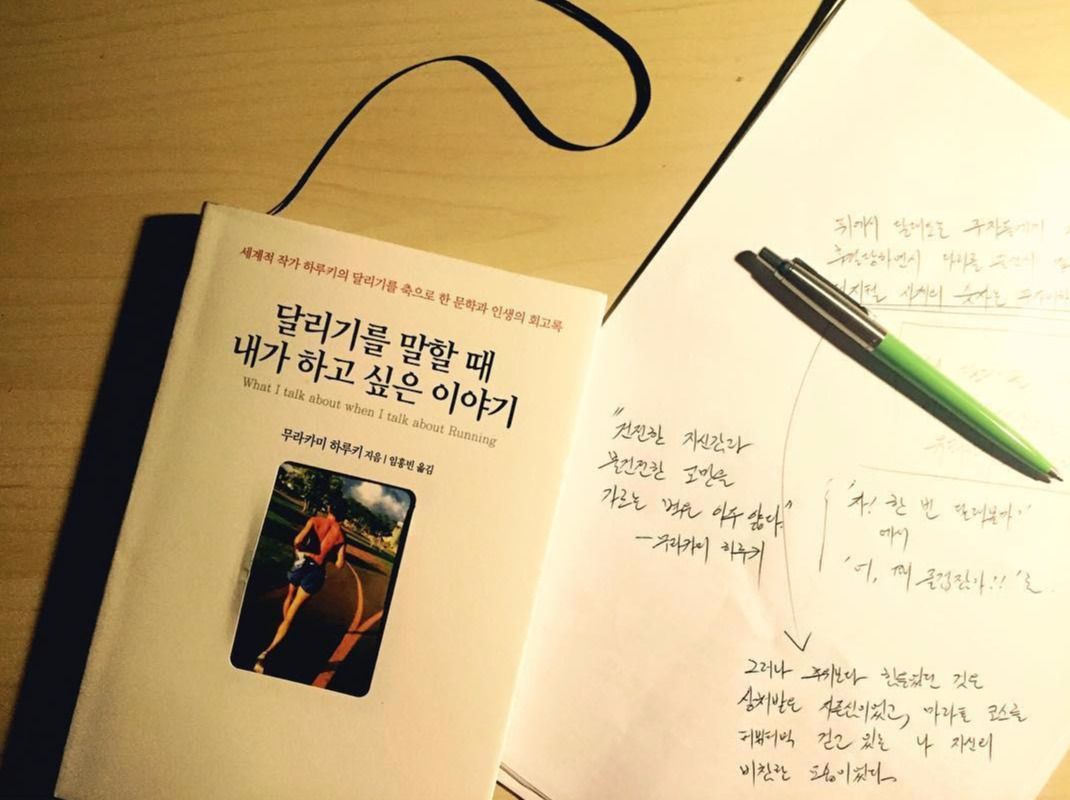 세계적 작가 하루키의 달리기를 축으로 한 문학과 인생의 회고록
달리기를 말할 때
내가 하고 싶은 이야기
What I talk about when I talk about Running
무라카미 하루키 지음 | 임홍빈 옮김
뒤에서 달려오는 주자들에게
추월당하면서 다리를
세계의 숫자는
"건전한 자신감과
불건전한 교만을
가르는 벽은 아주 얇다."
- 무라카미 하루키
'자! 한 번 달려볼까?'
에서
'어, 찌 출겁잖아!!'로
그러나 무엇보다 힘들었던 것은
상처받은 자존심이었고, 마라톤 코스를
터벅터벅 걷고 있는 나 자신의
비참한 모습이었다.